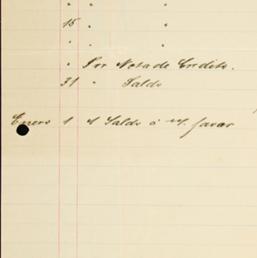 " " "
15 " "
" " "
" Por Nota de Credito.
31 " Saldo
Enero 1 Saldo a favor